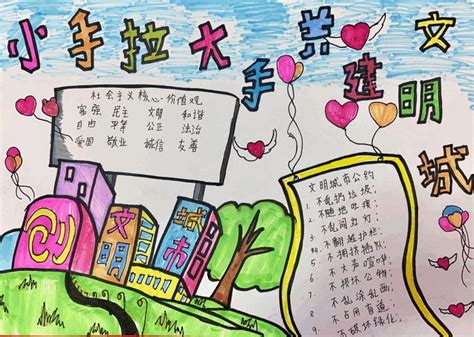 小手拉大手共建文明城
社会主义核心·价值观
富强 民主 文明 和谐
自由 平等 公正 法治
爱国 敬业 诚信 友善
创
文明
城市
文明城市公约
不乱扔垃圾;
不随地吐痰;
不乱闯红灯;
不翻越护栏;
不拥挤插队;
不大声喧哗;
不损坏公物;
不乱涂乱画;
不占用盲道;
不破坏绿化;